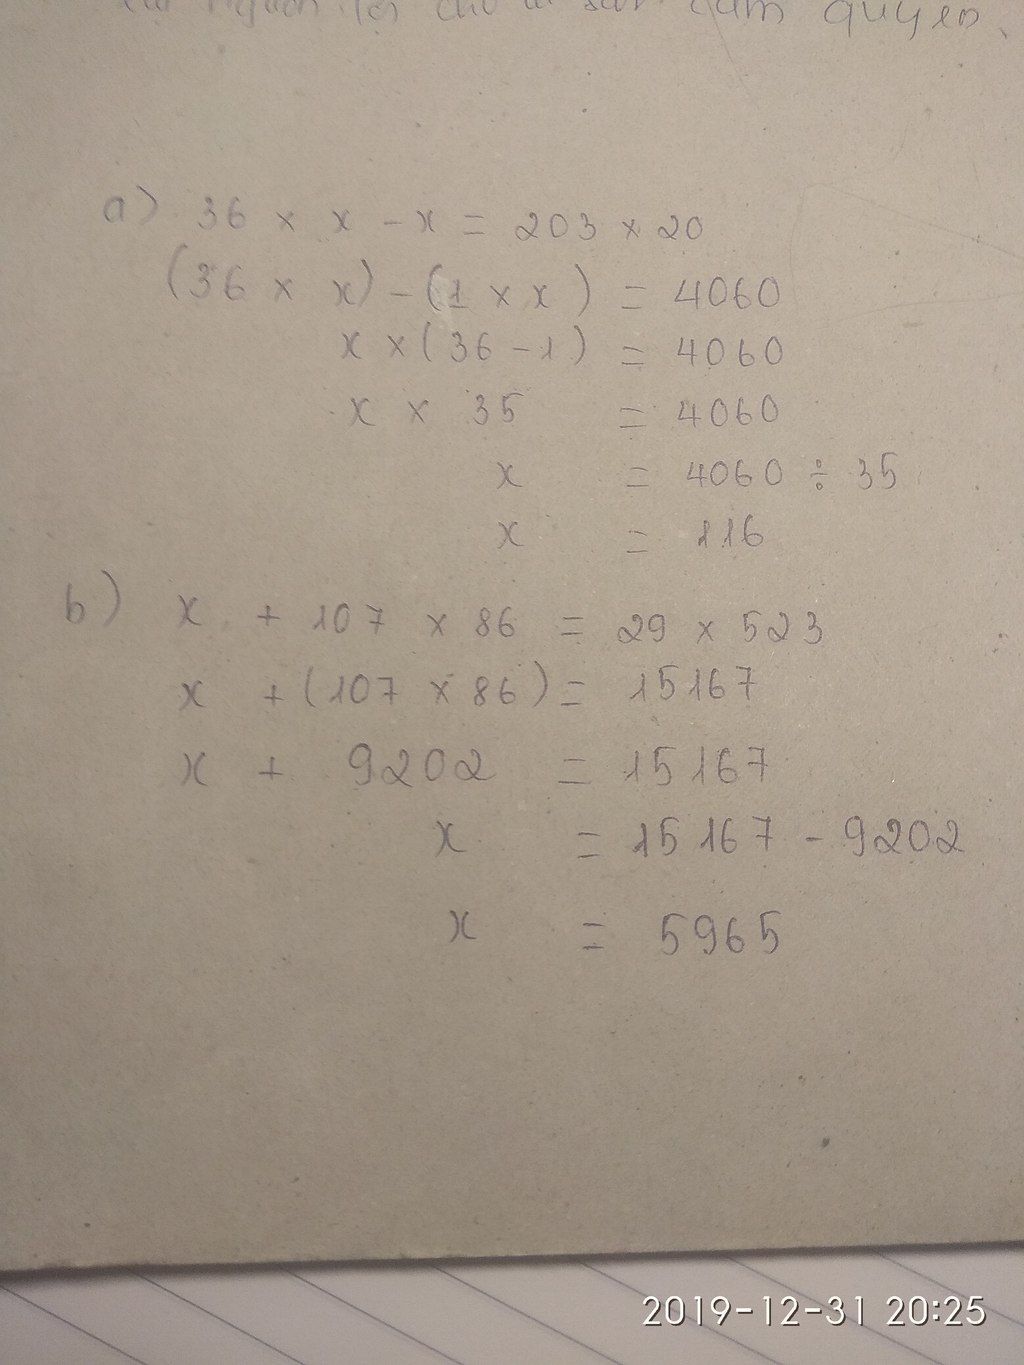 cho quyền
a) 36 × x - x = 203 × 20
(36 × x) - (1 × x) = 4060
x × (36 - 1) = 4060
x × 35 = 4060
x = 4060 ÷ 35
x = 116
b) x + 107 × 86 = 29 × 523
x + (107 × 86) = 15167
x + 9202 = 15167
x = 15167 - 9202
x = 5965
2019-12-31 20:25